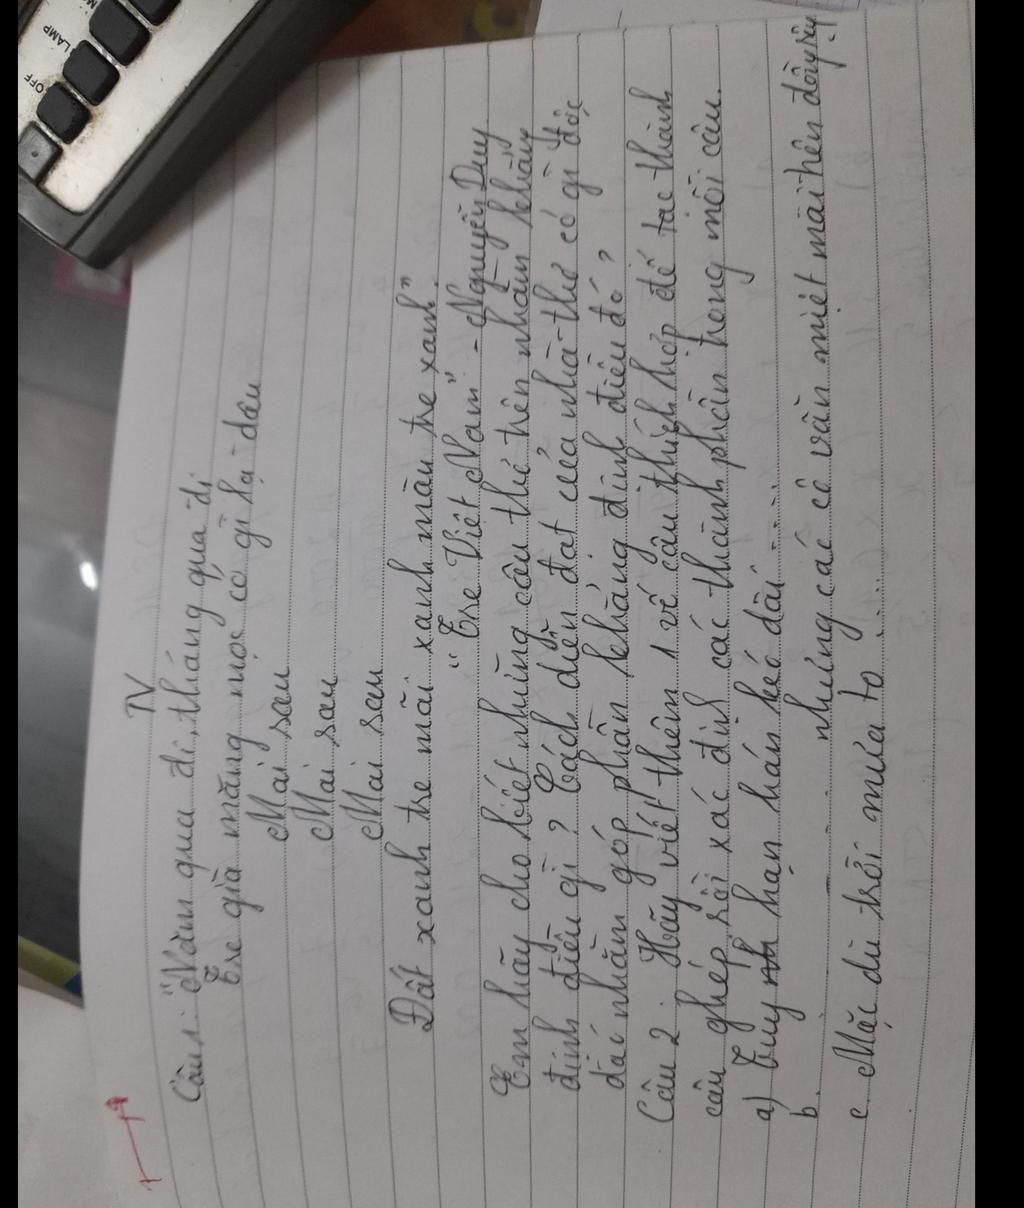 TV
Câu 1: "Năm qua đi, tháng qua đi
Tre già măng mọc có gì lạ đâu
Mai sau
Mai sau
Mai sau
Đất xanh tre mãi xanh màu tre xanh".
"Tre Việt Nam" - Nguyễn Duy
Em hãy cho biết những câu thơ trên nhằm khẳng
định điều gì? Cách diễn đạt của nhà thơ có gì độc
đáo nhằm góp phần khẳng định điều đó?
Câu 2. Hãy viết thêm 1 vế câu thích hợp để tạo thành
câu ghép rồi xác định các thành phần trong mỗi câu.
a) Tuy hạn hán kéo dài .....
b. ......... nhưng các cô vẫn miệt mài trên đồng ruộng
c. Mặc dù trời mưa to .....
OFF
LAMP